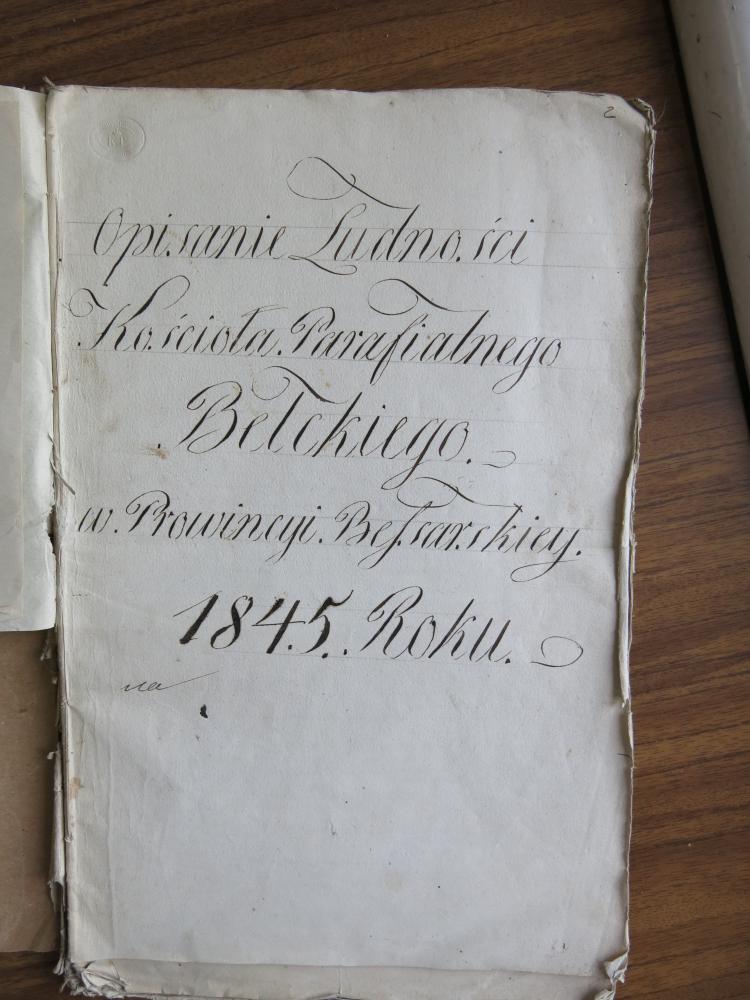 2
Opisanie Ludności
Kościoła Parafialnego
Bełckiego.
w Prowincyi Bessarskiey.
1845. Roku.
na